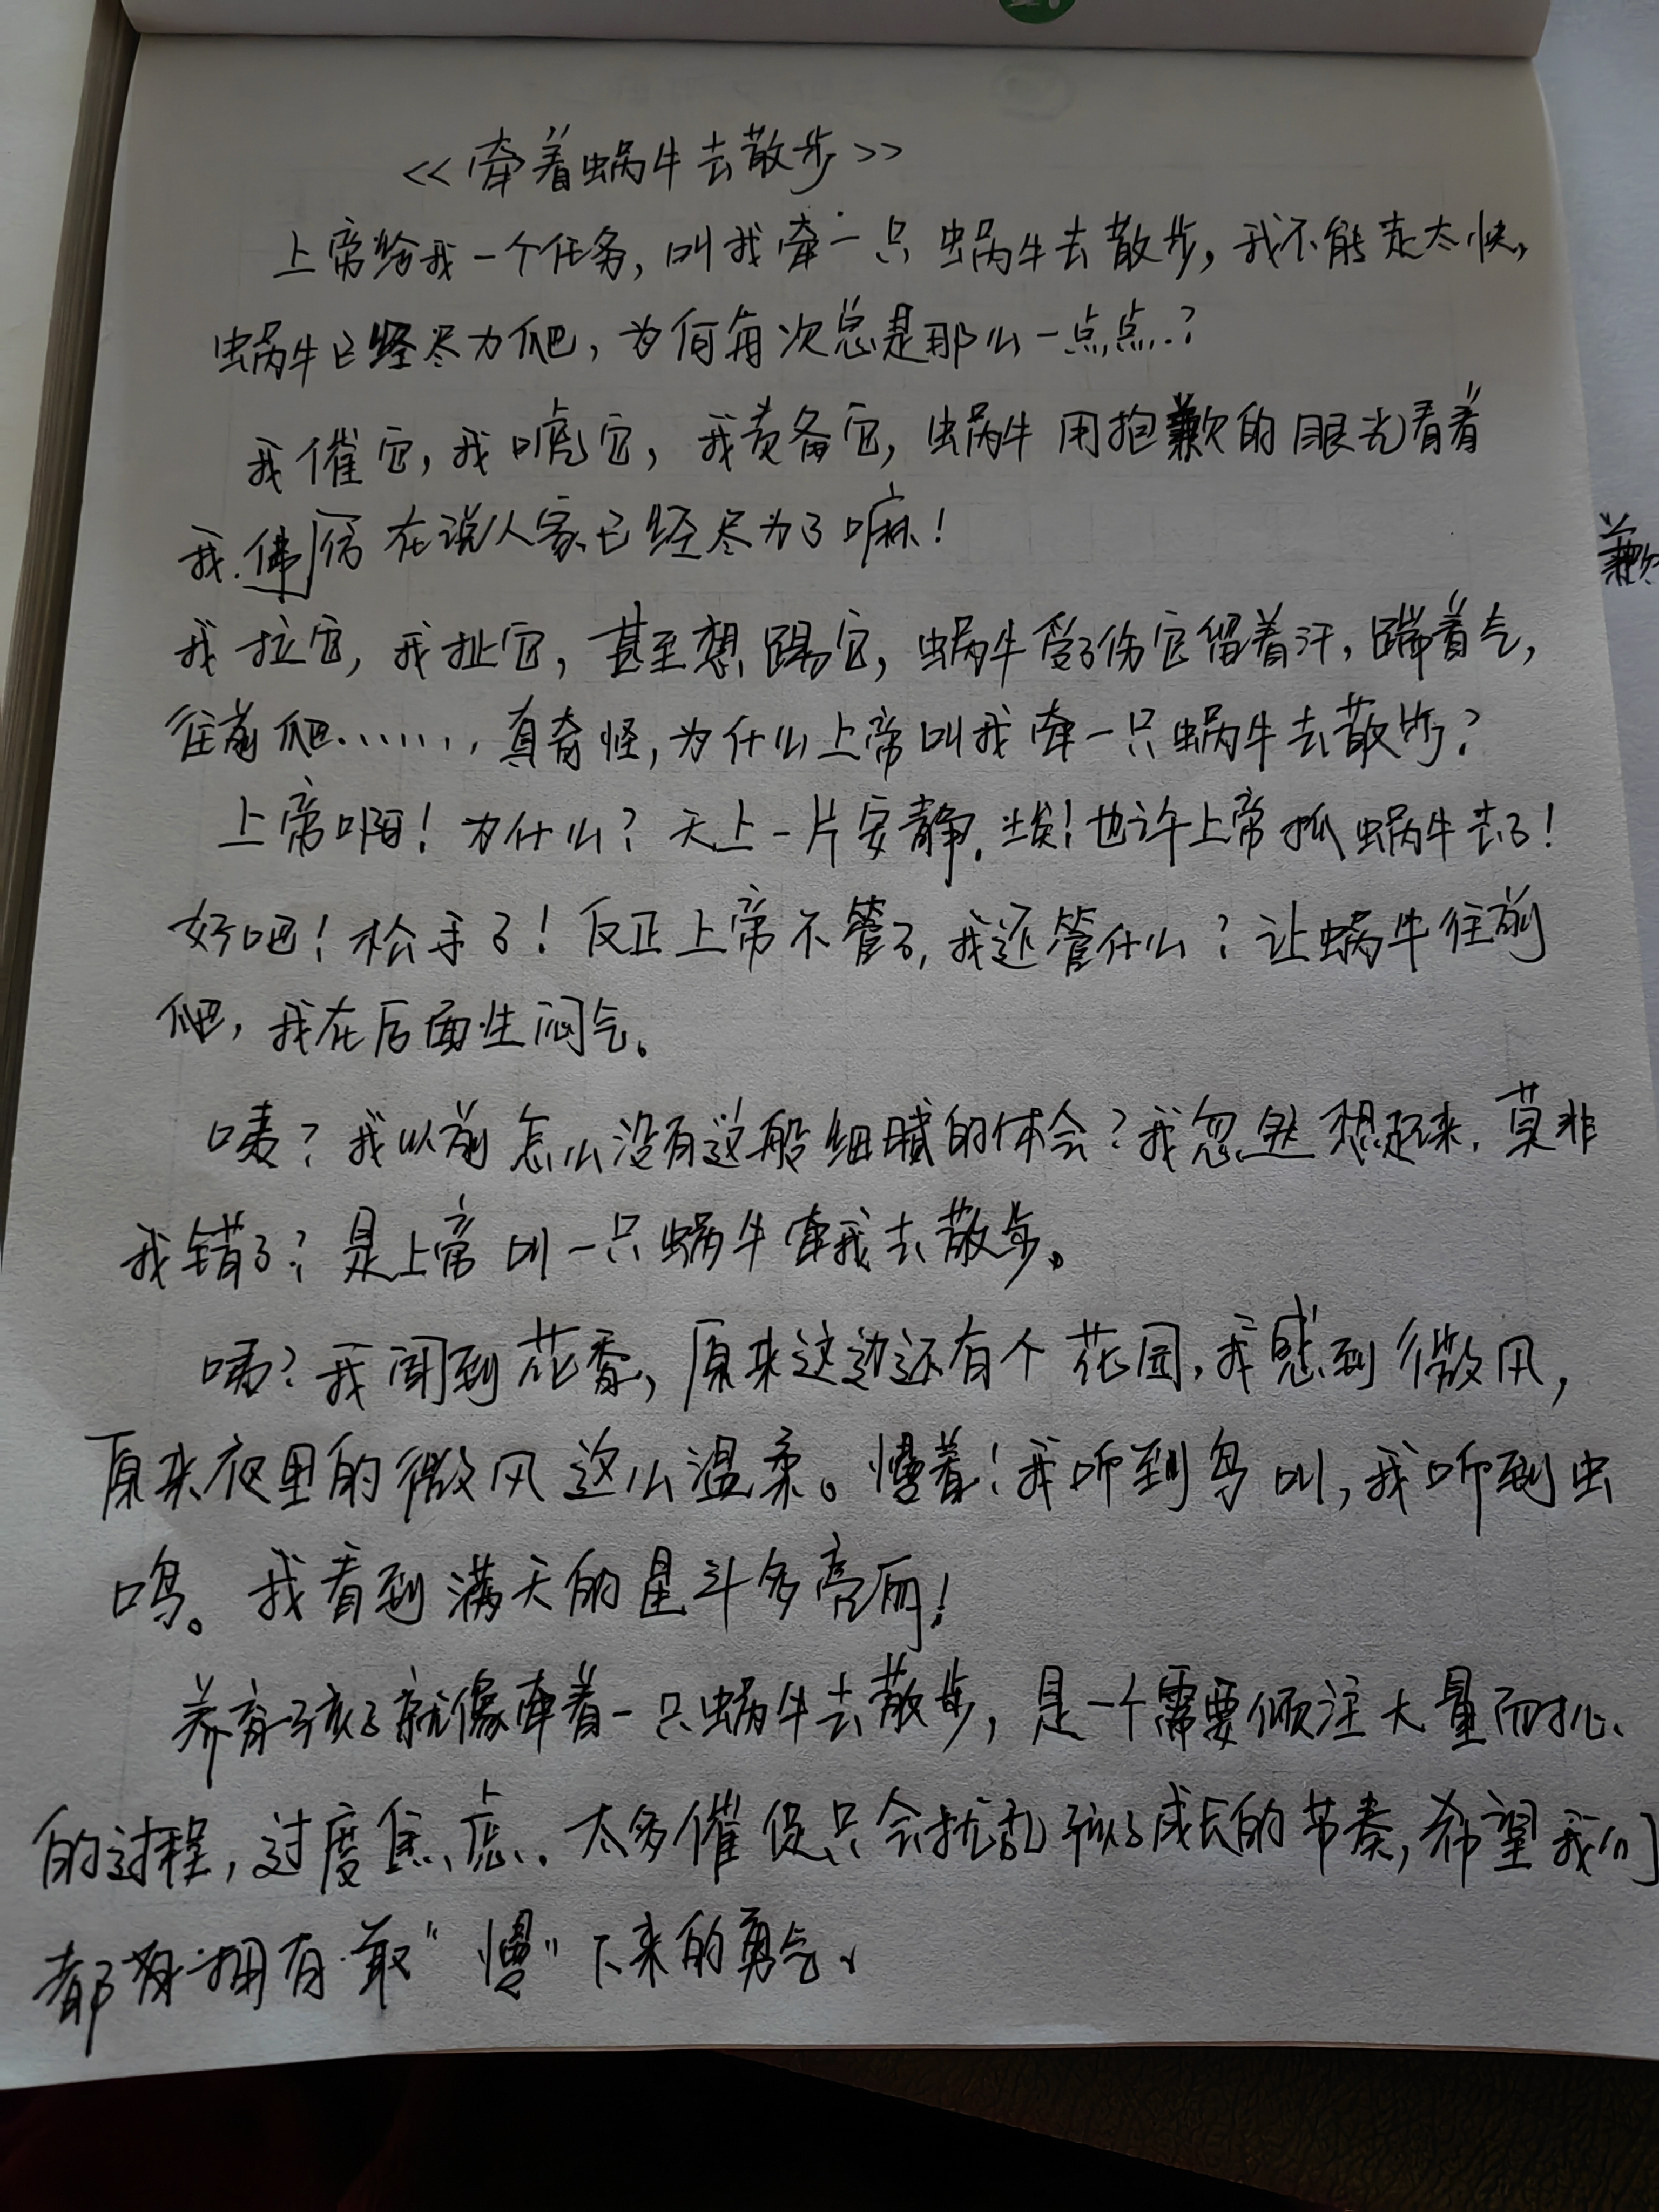 <<牵着蜗牛去散步>>
上帝给我一个任务，叫我牵一只蜗牛去散步，我不能走太快，
蜗牛已经尽力爬，为何每次总是那么一点点？
我催它，我唬它，我责备它，蜗牛用抱歉的眼光看着
我.佛后在说人家已经尽力了嘛！
歉
我拉它，我扯它，甚至想踢它，蜗牛受了伤它留着汗，踹着气，
往前爬……，真奇怪，为什么上帝叫我牵一只蜗牛去散步？
上帝啊！为什么？天上一片安静.唉！也许上帝抓蜗牛去了！
好吧！松手了！反正上帝不管了，我还管什么？让蜗牛往前
爬，我在后面生闷气。
咦？我以前怎么没有这般细腻的体会？我忽然想起来，莫非
我错了？是上帝叫一只蜗牛牵我去散步。
咦？我闻到花香，原来这边还有个花园，我感到微风，
原来夜里的微风这么温柔。慢着！我听到鸟叫，我听到虫
鸣。我看到满天的星斗多亮丽！
养育孩子就像牵着一只蜗牛去散步，是一个需要倾注大量耐心
的过程，过度焦虑、太多催促只会扰乱孩子成长的节奏，希望我们
都拥有敢“慢”下来的勇气、